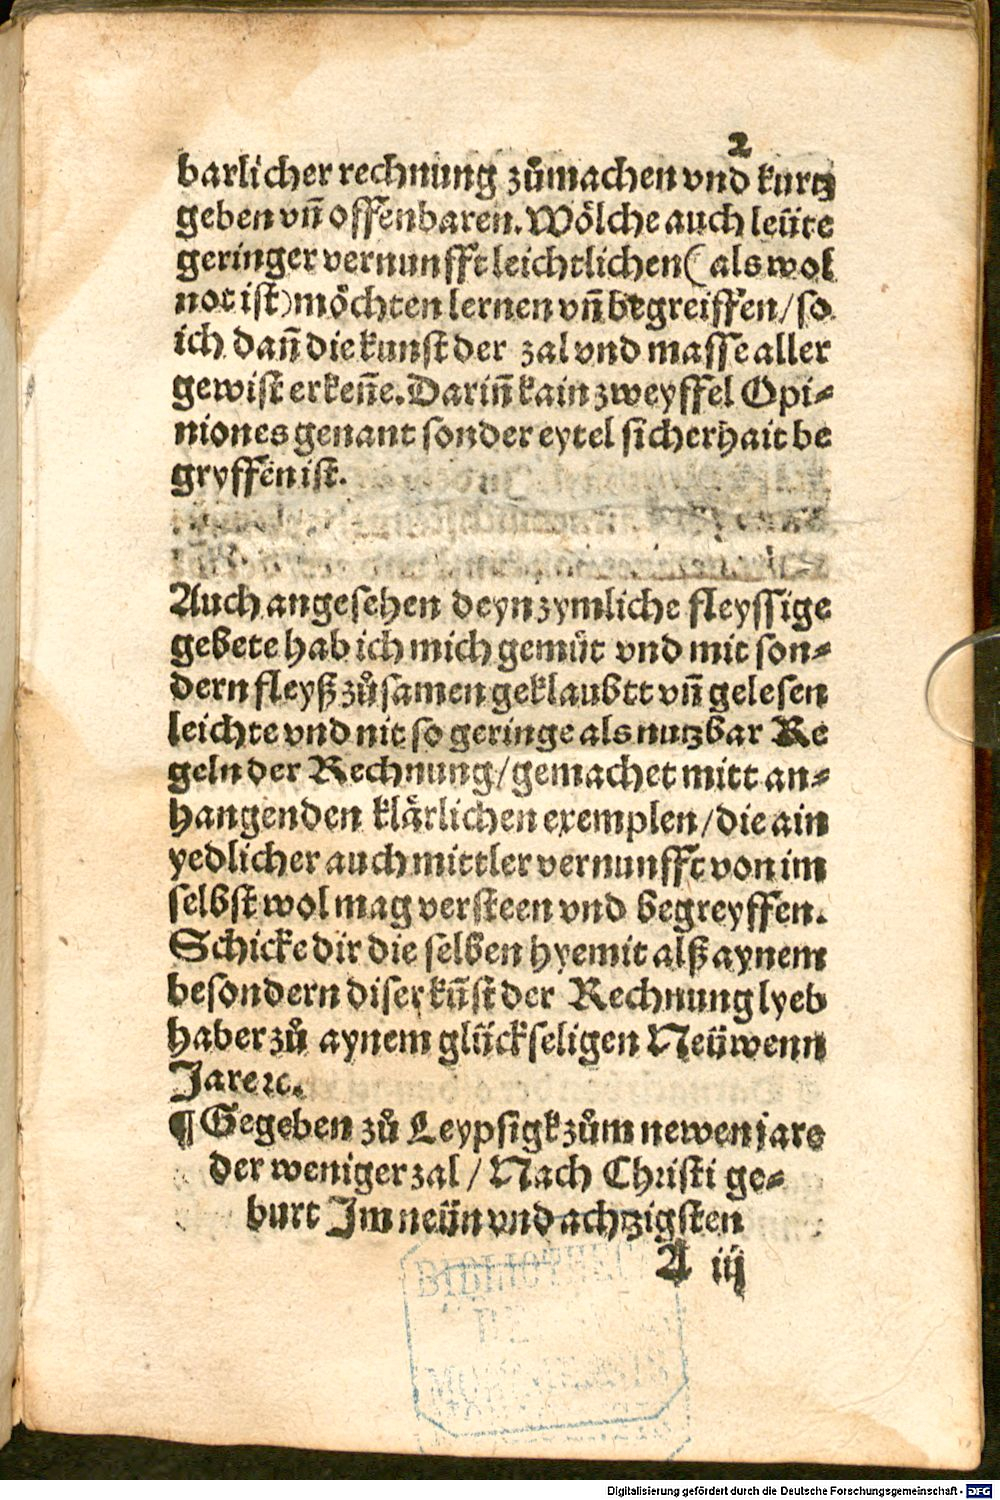 2
barlicher rechnung zůmachen vnd kurtz
geben vñ offenbaren. Wölche auch leüte
geringer vernunfft leichtlichen ( als wol
not ist) möchten lernen vñ begreiffen / so
ich dañ die kunst der zal vnd masse aller
gewist erkeñe. Dariñ kain zweyffel Opi-
niones genant sonder eytel sicherhait be
gryffen ist.
Auch angesehen deyn zymliche fleyssige
gebete hab ich mich gemüt vnd mit son-
dern fleyß zůsamen geklaubtt vñ gelesen
leichte vnd nit so geringe als nutzbar Re
geln der Rechnung / gemachet mitt an-
hangenden klärlichen exemplen / die ain
yedlicher auch mittler vernunfft von im
selbst wol mag versteen vnd begreyffen.
Schicke dir die selben hyemit alß aynem
besondern diser kũst der Rechnung lyeb
haber zů aynem glückseligen Neüwenn
Jare ꝛc.
¶ Gegeben zů Leypsigk zům newen jare
der weniger zal / Nach Christi ge-
burt Im neün vnd achtzigsten
A iij
BIBLIOTHECA
MONACENSIS
Digitalisierung gefördert durch die Deutsche Forschungsgemeinschaft - DFG